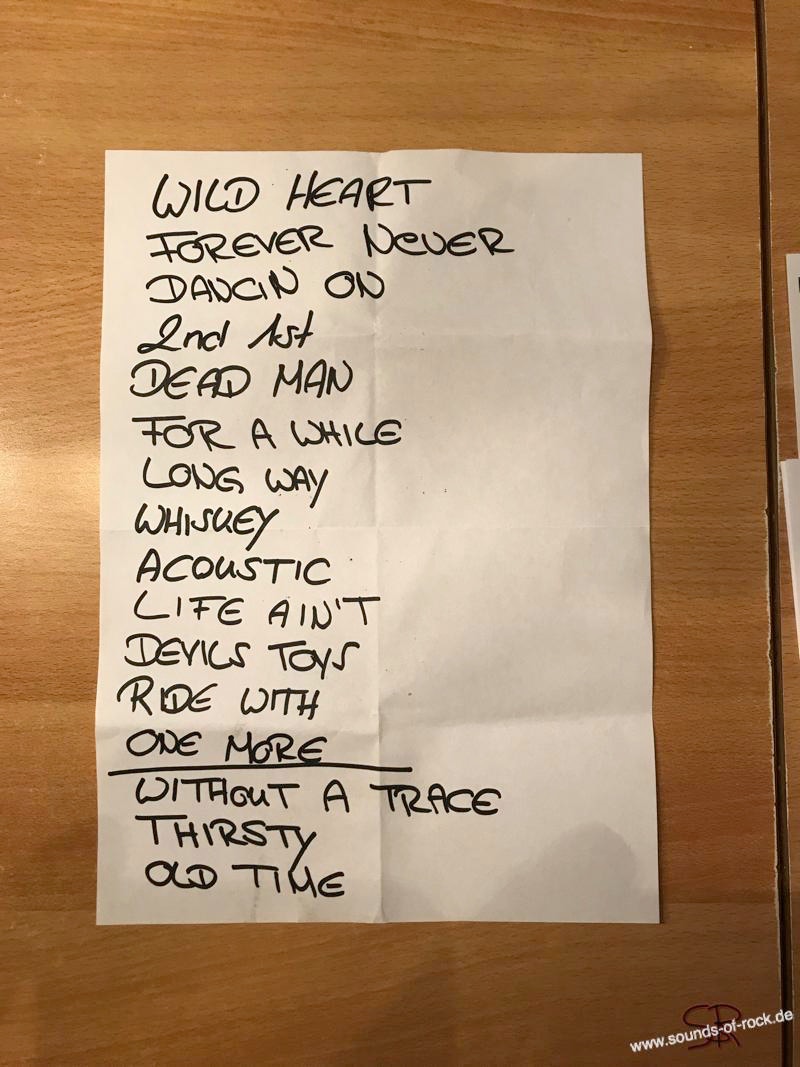 WILD HEART
FOREVER NEVER
DANCIN ON
2nd 1st
DEAD MAN
FOR A WHILE
LONG WAY
WHISKEY
ACOUSTIC
LIFE AIN'T
DEVILS TOYS
RIDE WITH
ONE MORE
WITHOUT A TRACE
THIRSTY
OLD TIME
SR
www.sounds-of-rock.de